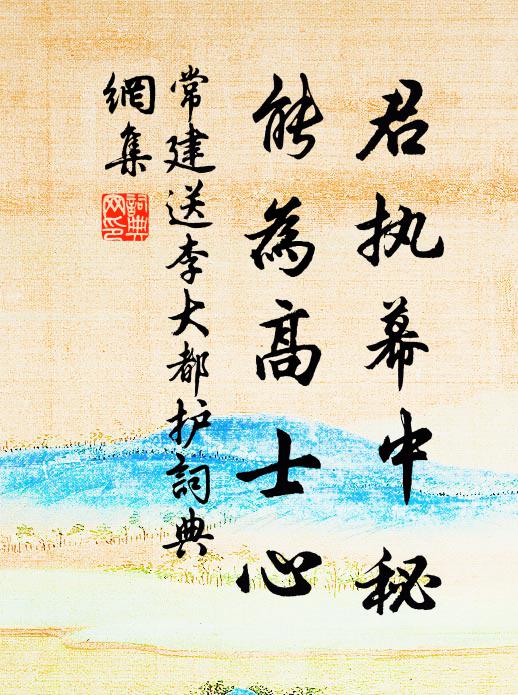 君执幕中秘
能為高士心
常建送李大都护詞典
網集
詞典
网印